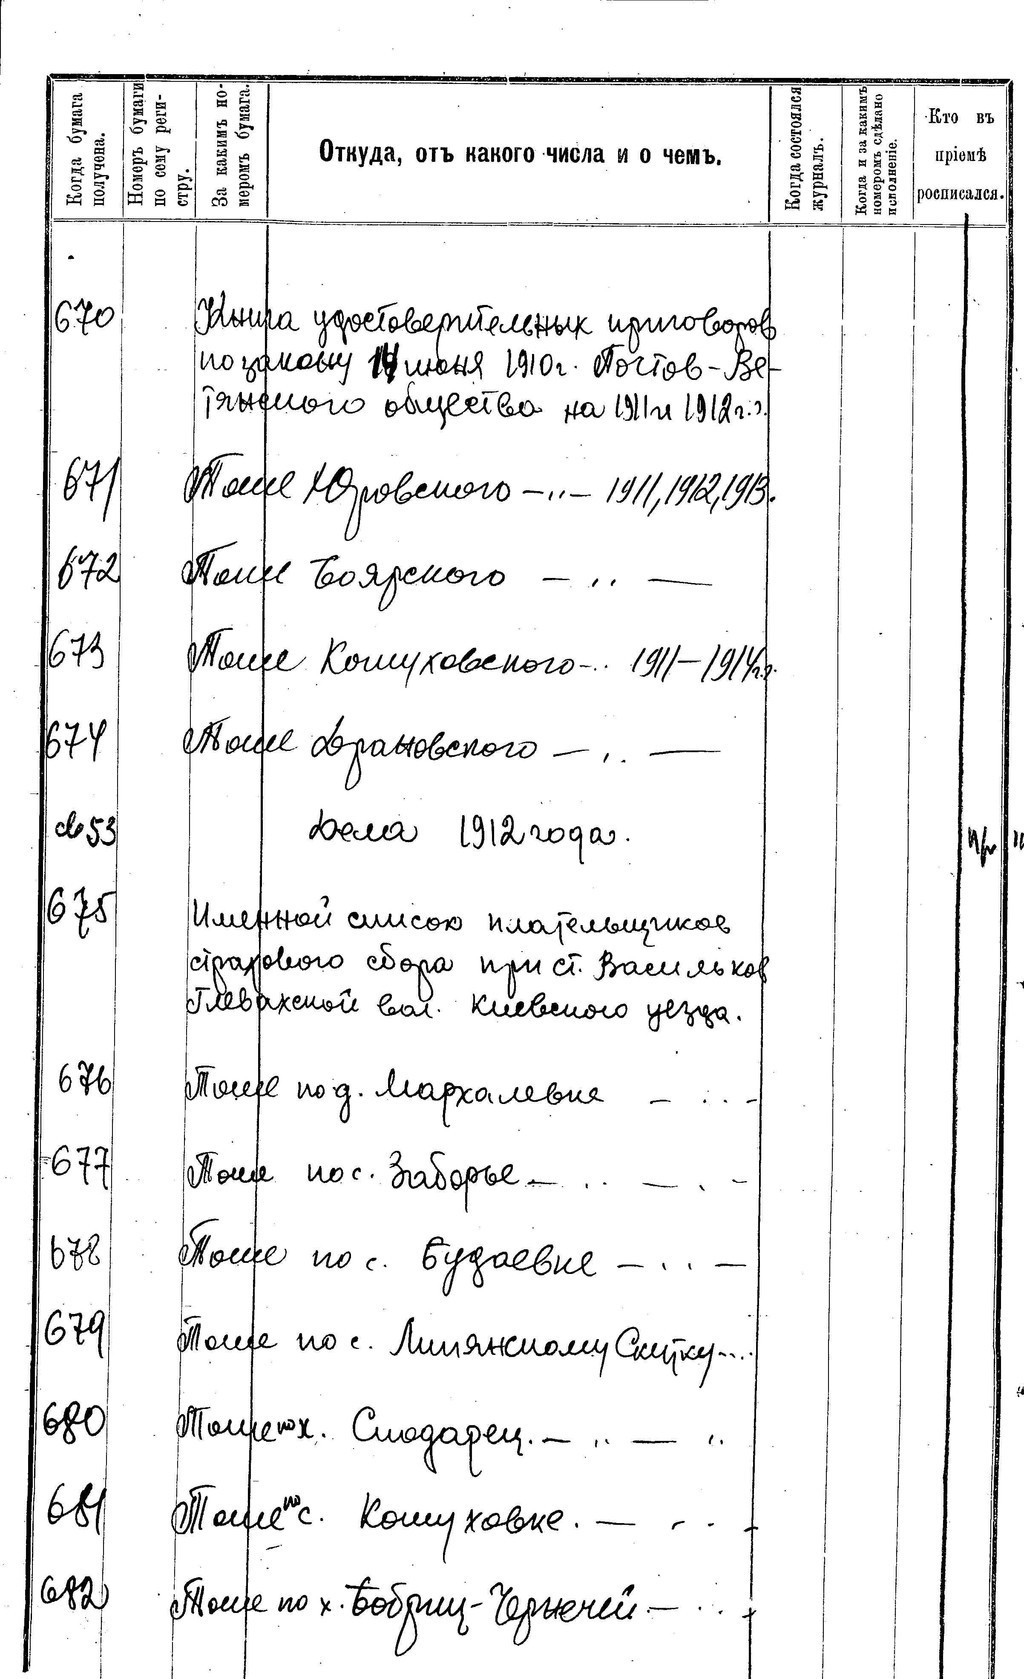 Когда бумага получена.
Номеръ бумаги по сему регистру.
За какимъ номеромъ бумага.
Откуда, отъ какого числа и о чемъ.
Когда состоялся журналъ.
Когда и за какимъ номеромъ сдѣлано исполненіе.
Кто въ пріемѣ росписался.
670 Книга удостоверительных приговоров
по закону 14 июня 1910 г. Почтов-Ве-
тянского общества на 1911 и 1912 г.г.
671 Тоше Юровского —"— 1911, 1912, 1913.
672 Тоше Боярского — " —
673 Тоше Кошуховского - " 1911—1914 г.г.
674 Тоше Драновского — " —
св 53 Дела 1912 года.
675 Именной список плательщиков
страхового сбора при ст. Васильков
Глевахской вол. Киевского уезда.
676 Тоше по д. Мархалевке — " -
677 Тоше по с. Заборье — " — " -
678 Тоше по с. Будаевке — " —
679 Тоше по с. Липянскому Скитку — "
680 Тоше по х. Слодарец. — " — "
681 Тоше по с. Кошуховке. — " -
682 Тоше по х. Бобриц-Чернечей — " -